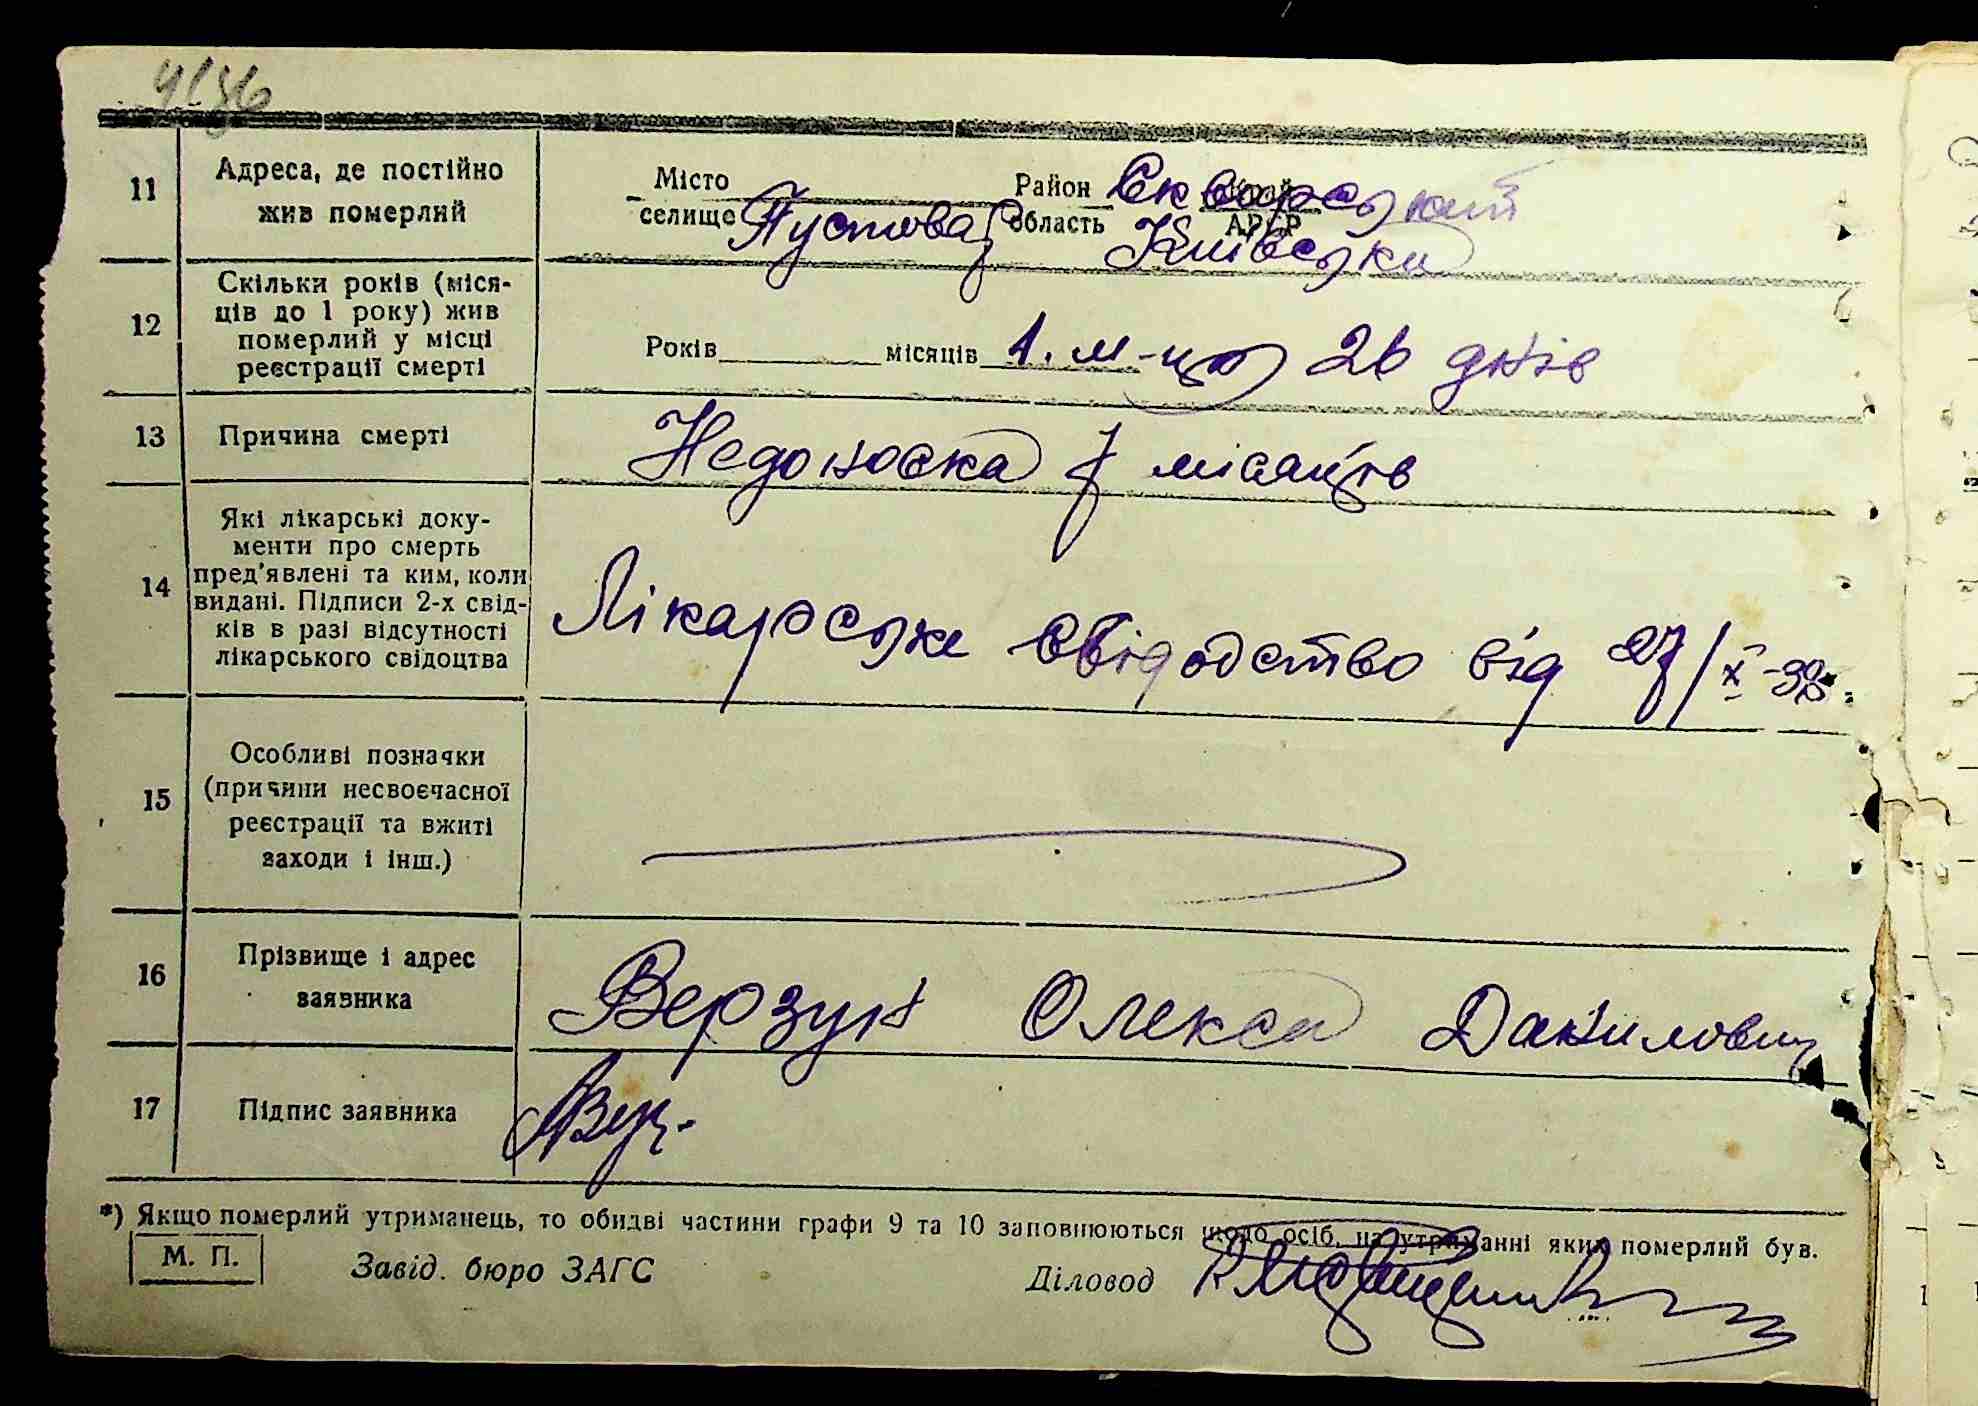 4136
11 Адреса, де постійно Місто Район Сквирський Край
жив померлий селище Пустовар Область Київська АРСР
12 Скільки років (міся-
ців до 1 року) жив
померлий у місці Років місяців 1. м-ць 26 днів
реєстрації смерті
13 Причина смерті Недоноска 7 місяців
14 Які лікарські доку-
менти про смерть
пред'явлені та ким, коли
видані. Підписи 2-х свід- Лікарське свідодство від 27/X-38.
ків в разі відсутності
лікарського свідоцтва
15 Особливі позначки
(причини несвоєчасної
реєстрації та вжиті
заходи і інш.)
16 Прізвище і адрес Верзун Олекса Данилович
заявника
17 Підпис заявника
*) Якщо померлий утриманець, то обидві частини графи 9 та 10 заповнюються щодо осіб, на утриманні яких померлий був.
М. П. Завід. бюро ЗАГС Діловод